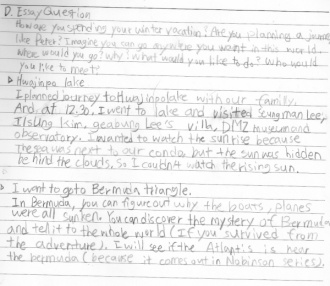 D. Essay Question
How are you spending your winter vacation? Are you planning a journey
like Peter? Imagine you can go anywhere you want in this world.
Where would you go? Why? What would you like to do? Who would
you like to meet?
▷ Hwajinpo lake
I planned journey to Hwajinpolake with our family.
And at 12.30, I went to lake and visited Seungman Lee,
Ilsung Kim, geabung Lee's villa, DMZ museum and
observatory. I wanted to watch the sunrise because
the sea was next to our condo but the sun was hidden
behind the clouds, so I couldn't watch the rising sun.
▷ I want to go to Bermuda triangle.
In Bermuda, you can figure out why the boats, planes
were all sunken. You can discover the mystery of Bermuda
and tell it to the whole world (If you survived from
the adventure). I will see if the Atlantis is near
the bermuda (because it comes out in Nobinson series).